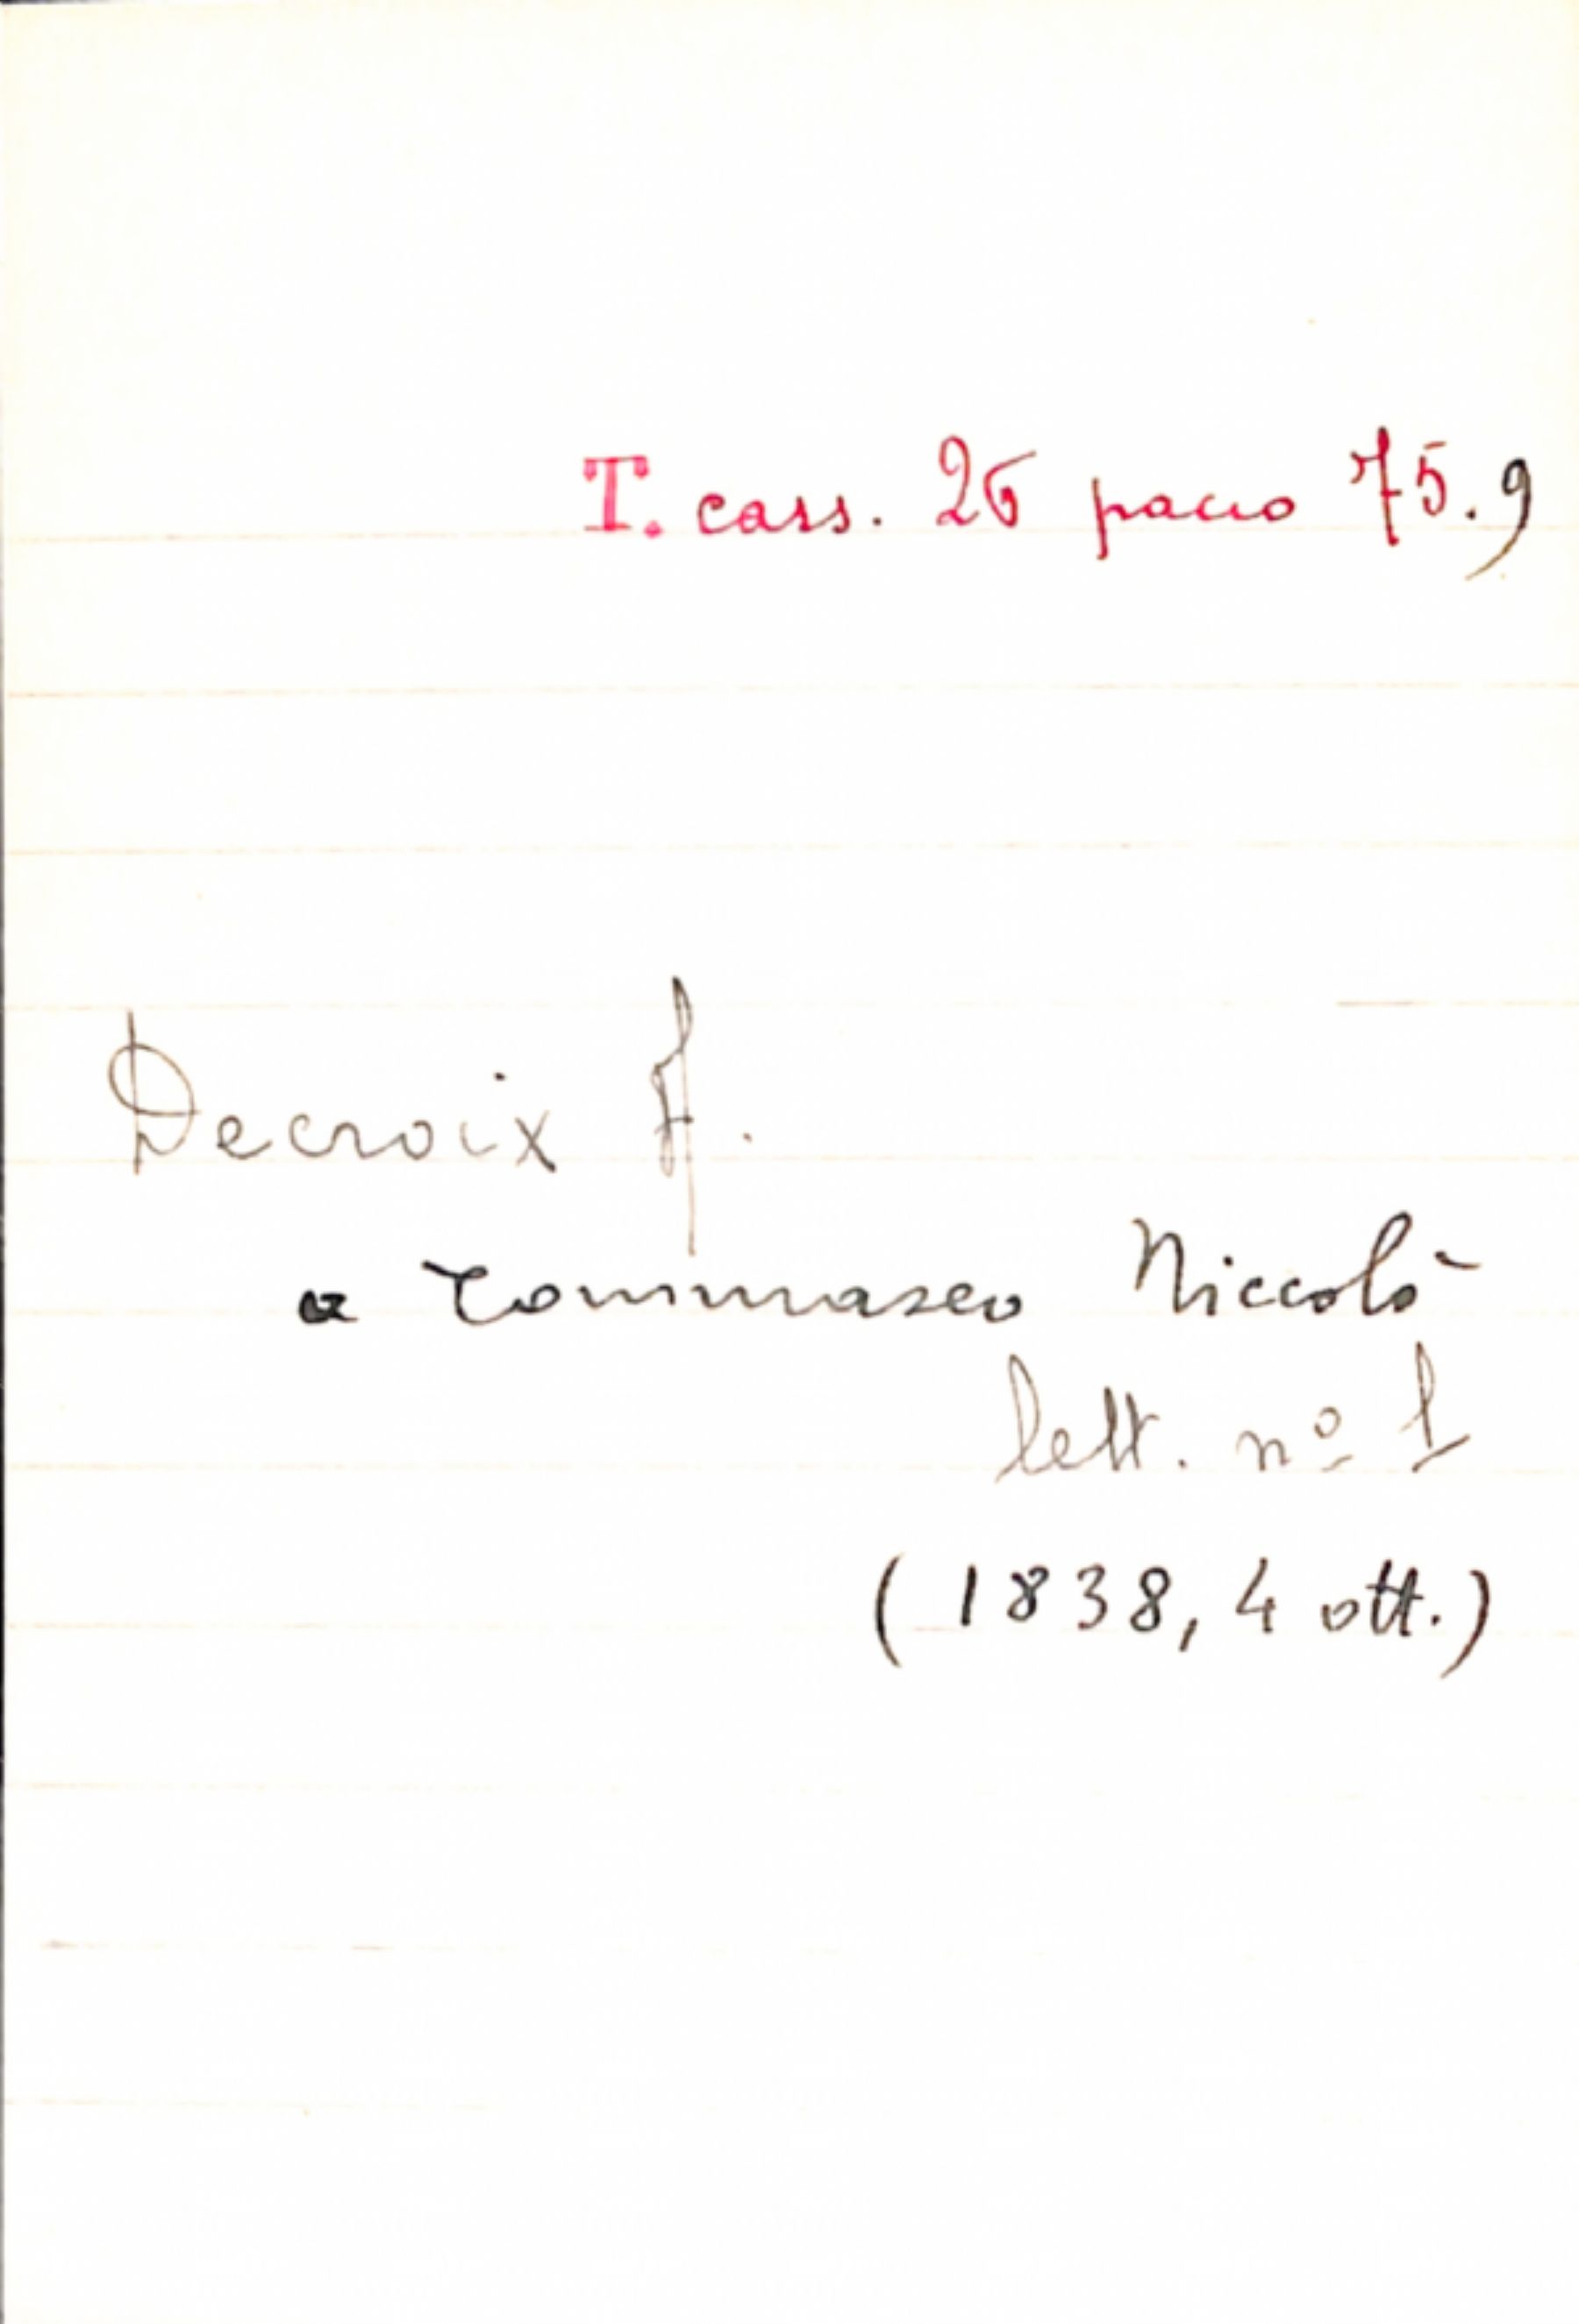 T. cass. 26 pacco 75.9
Decroix A.
a Tommaseo Niccolò
lett. nº 1
(1838, 4 ott.)